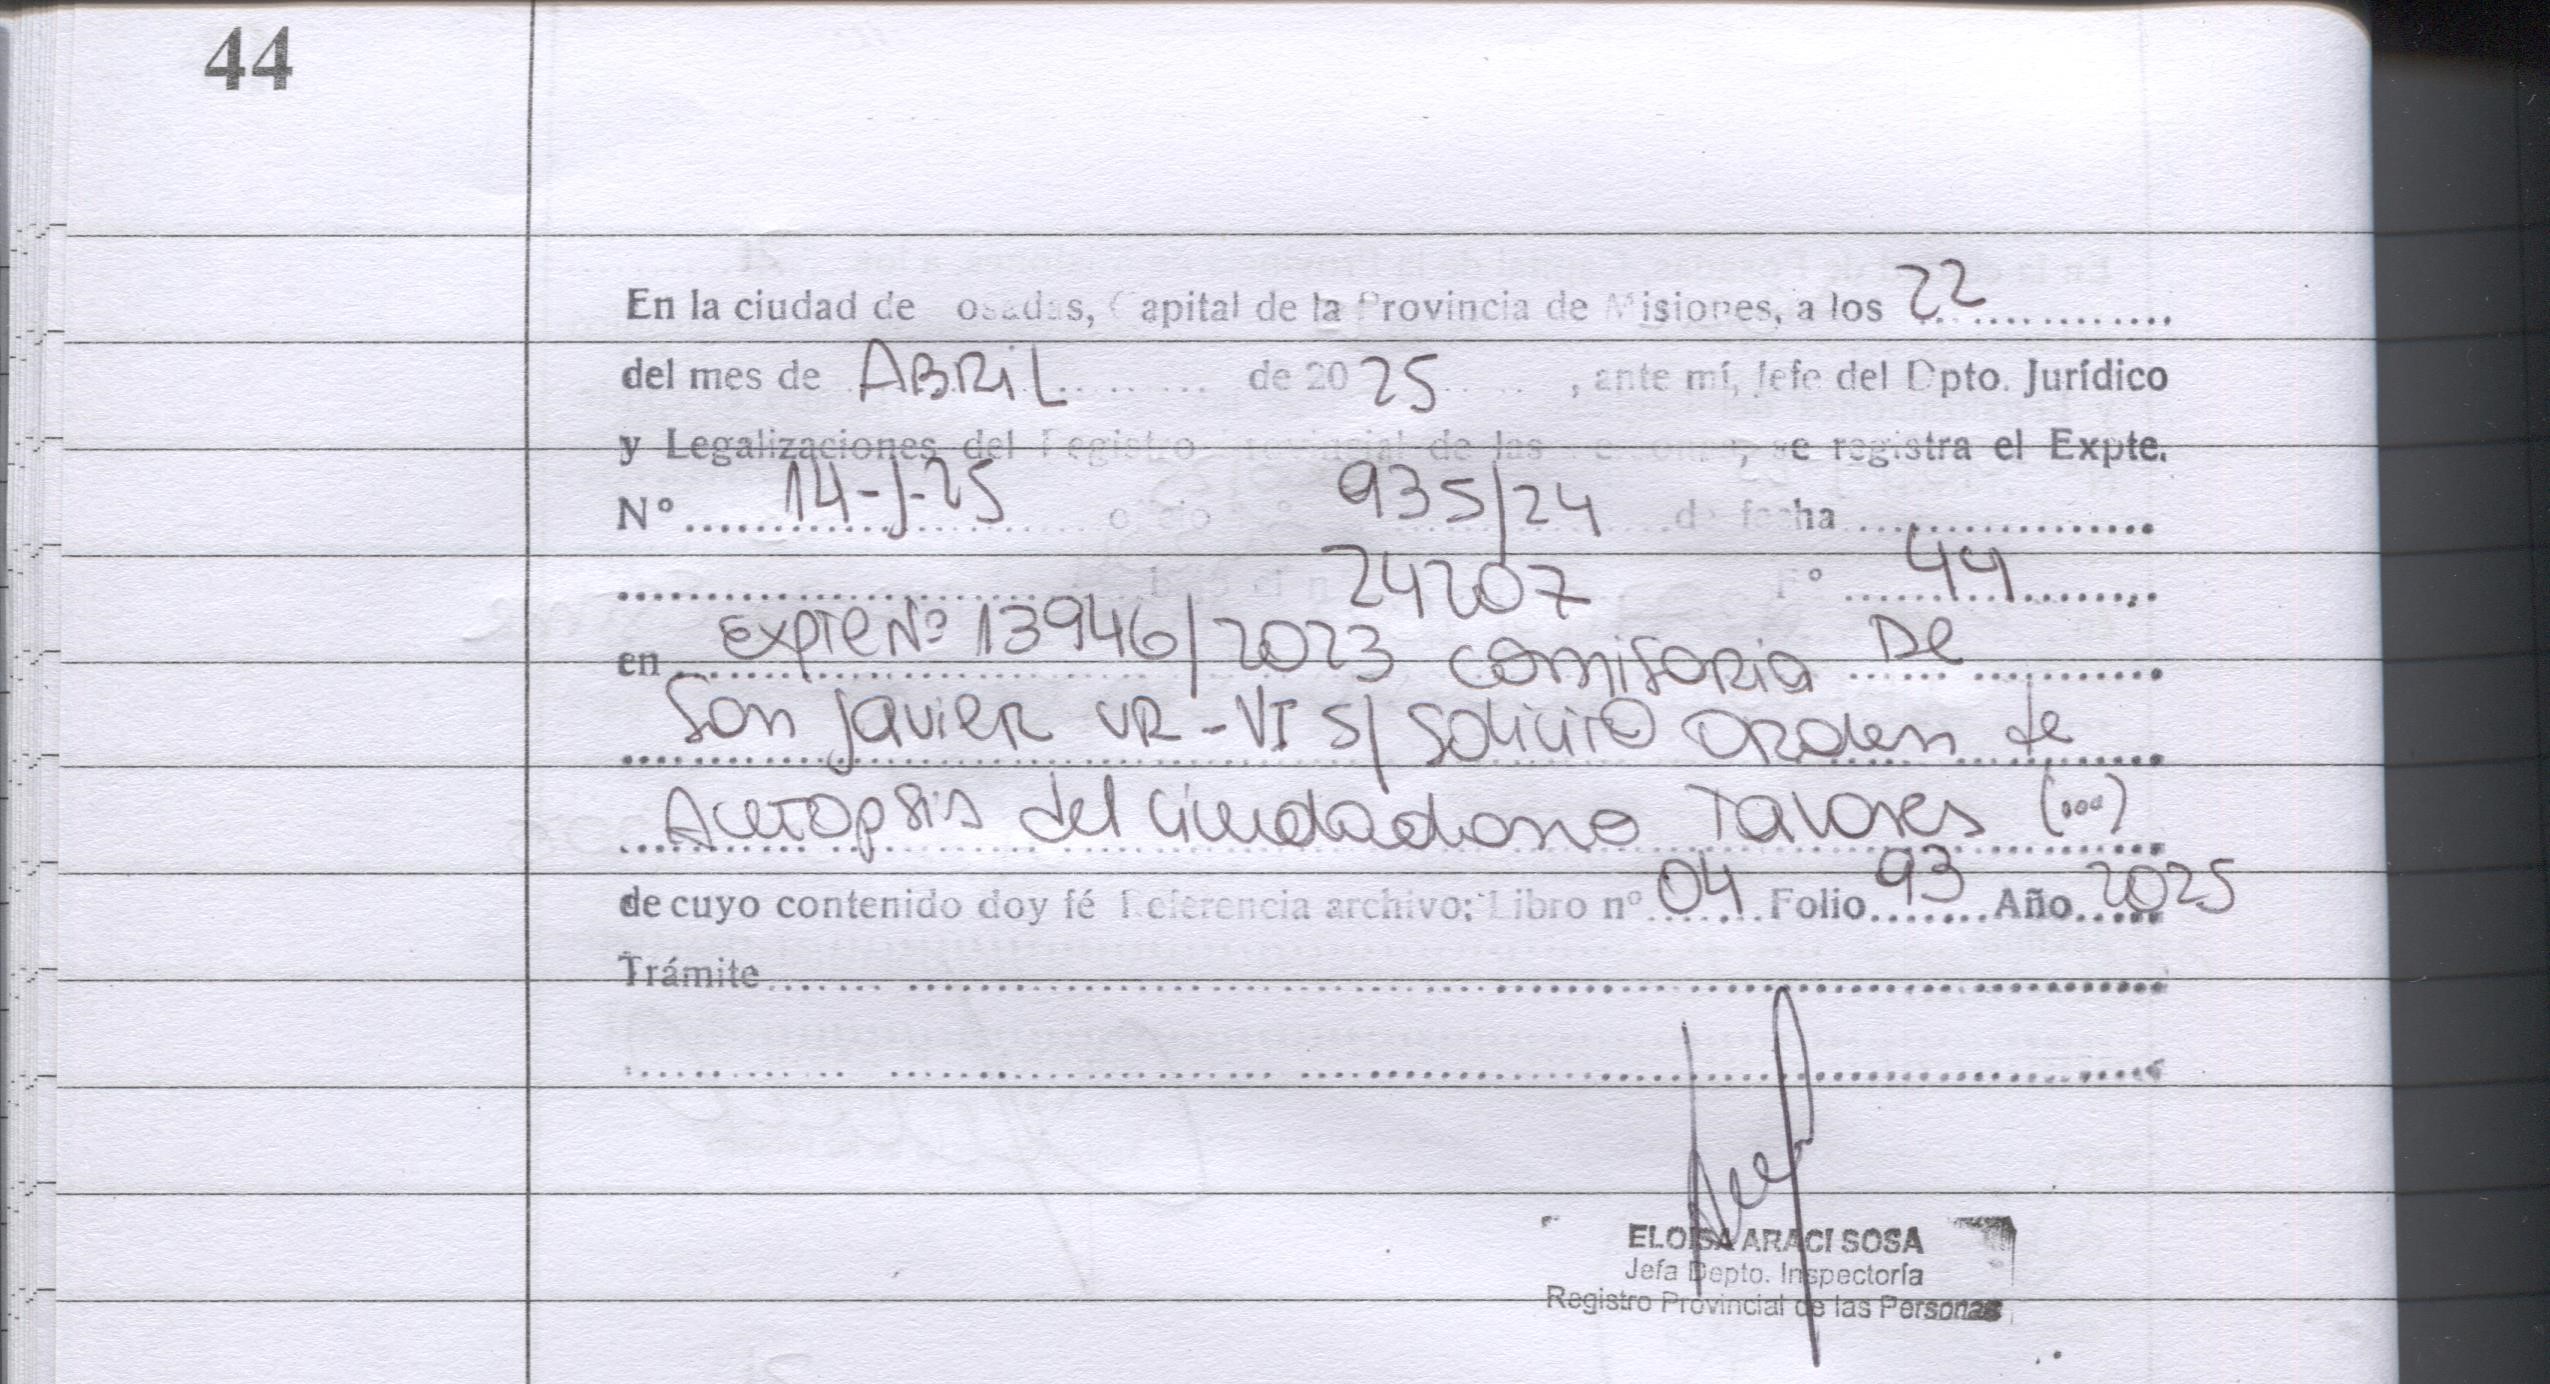 44
En la ciudad de osadas, Capital de la Provincia de Misiones, a los 22
del mes de ABRIL de 2025, ante mí, Jefe del Dpto. Jurídico
y Legalizaciones del Registro Provincial de las se registra el Expte.
N° 14-J-25 oficio 935/24 de fecha
24207 F° 44
en Expte Nº 13946/2023 comisaria De
San Javier UR-VI S/ Solicita Orden de
Autopsia del Ciudadano Tavares (...)
de cuyo contenido doy fé Referencia archivo: Libro nº 04 Folio 93 Año 2025
Trámite
ELOISA ARACI SOSA
Jefa Depto. Inspectoría
Registro Provincial de las Personas